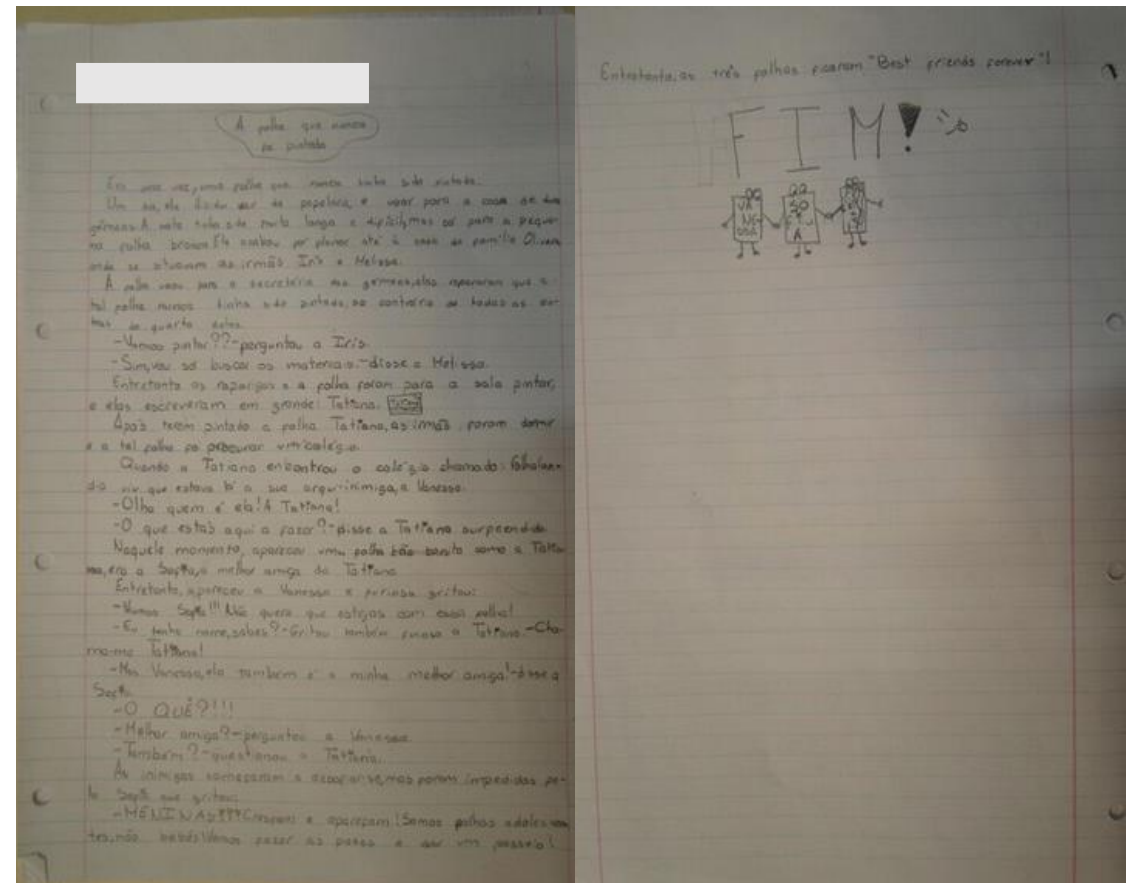 A folha que nunca
foi pintada
Era uma vez, uma folha que nunca tinha sido pintada.
Um dia, ela decidiu sair da papelaria, e voar para a casa de duas
gémeas. A viagem tinha sido muito longa e difícil, mas só para a peque-
na folha branca. Ela acabou por planar até à casa da família Oliveira
onde se situavam as irmãs Iris e Melissa.
A folha voou para a secretária das gémeas, elas repararam que a
tal folha nunca tinha sido pintada, ao contrário de todas as ou-
tras do quarto delas.
-Vamos pintar??-perguntou a Iris.
-Sim, vou só buscar os materiais.-disse a Melissa.
Entretanto as raparigas e a folha foram para a sala pintar,
e elas escreveram em grande: Tatiana.
Após terem pintado a folha Tatiana, as irmãs foram dormir
e a tal folha foi procurar um colégio.
Quando a Tatiana encontrou o colégio chamado: Folhalân-
dia viu que estava lá a sua arqui-inimiga, a Vanessa.
-Olha quem é ela! A Tatiana!
-O que estás aqui a fazer?-disse a Tatiana surpreendida.
Naquele momento, apareceu uma folha tão bonita como a Tatia-
na, era a Sofia, a melhor amiga da Tatiana.
Entretanto, apareceu a Vanessa e furiosa gritou:
-Vamos Sofia!!! Não quero que estejas com essa folha!
-Eu tenho nome, sabes?-Gritou também furiosa a Tatiana.-Cha-
mo-me Tatiana!
-Mas Vanessa, ela também é a minha melhor amiga!-disse a
Sofia.
-O QUÊ?!!!
-Melhor amiga?-perguntou a Vanessa.
-Também?-questionou a Tatiana.
As inimigas começaram a                mas foram impedidas pe-
la Sofia que gritou:
-MENINAS!!! Cresçam e apareçam! Somos folhas adolescen-
tes, não bebés! Vamos fazer as pazes e dar um passeio!
Entretanto, as três folhas ficaram "Best friends forever"!
FIM!
VA
NE
SSA
SO
FI
A